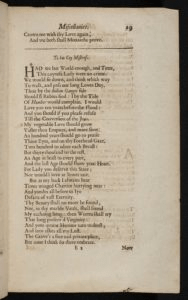 Miscellanies. 19
Crown me with thy Love again,
And we both shall Monarchs prove.
To his Coy Mistress.
HAD we but World enough, and Time,
This coyness Lady were no crime.
We would sit down, and think which way
To walk, and pass our long Loves Day.
Thou by the Indian Ganges side
Should'st Rubies find: I by the Tide
Of Humber would complain. I would
Love you ten years before the Flood:
And you should if you please refuse
Till the Conversion of the Jews.
My vegetable Love should grow
Vaster then Empires, and more slow.
An hundred years should go to praise
Thine Eyes, and on thy Forehead Gaze.
Two hundred to adore each Breast:
But thirty thousand to the rest.
An Age at least to every part,
And the last Age should show your Heart.
For Lady you deserve this State;
Nor would I love at lower rate.
But at my back I alwaies hear
Times winged Charriot hurrying near:
And yonder all before us lye
Desarts of vast Eternity.
Thy Beauty shall no more be found,
Nor, in thy marble Vault, shall sound
My ecchoing Song: then Worms shall try
That long preserv'd Virginity:
And your quaint Honour turn to dust;
And into ashes all my Lust.
The Grave's a fine and private place,
But none I think do there embrace.
Now